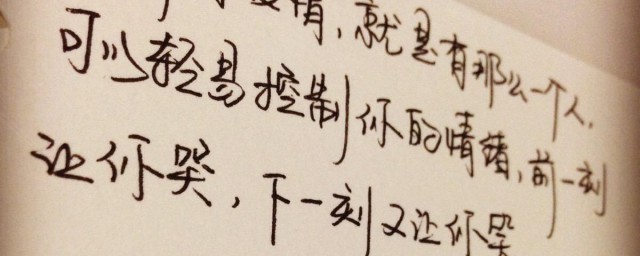 情,就是有那么一个人,
可以轻易控制你的情绪,前一刻
让你笑,下一刻又让你哭